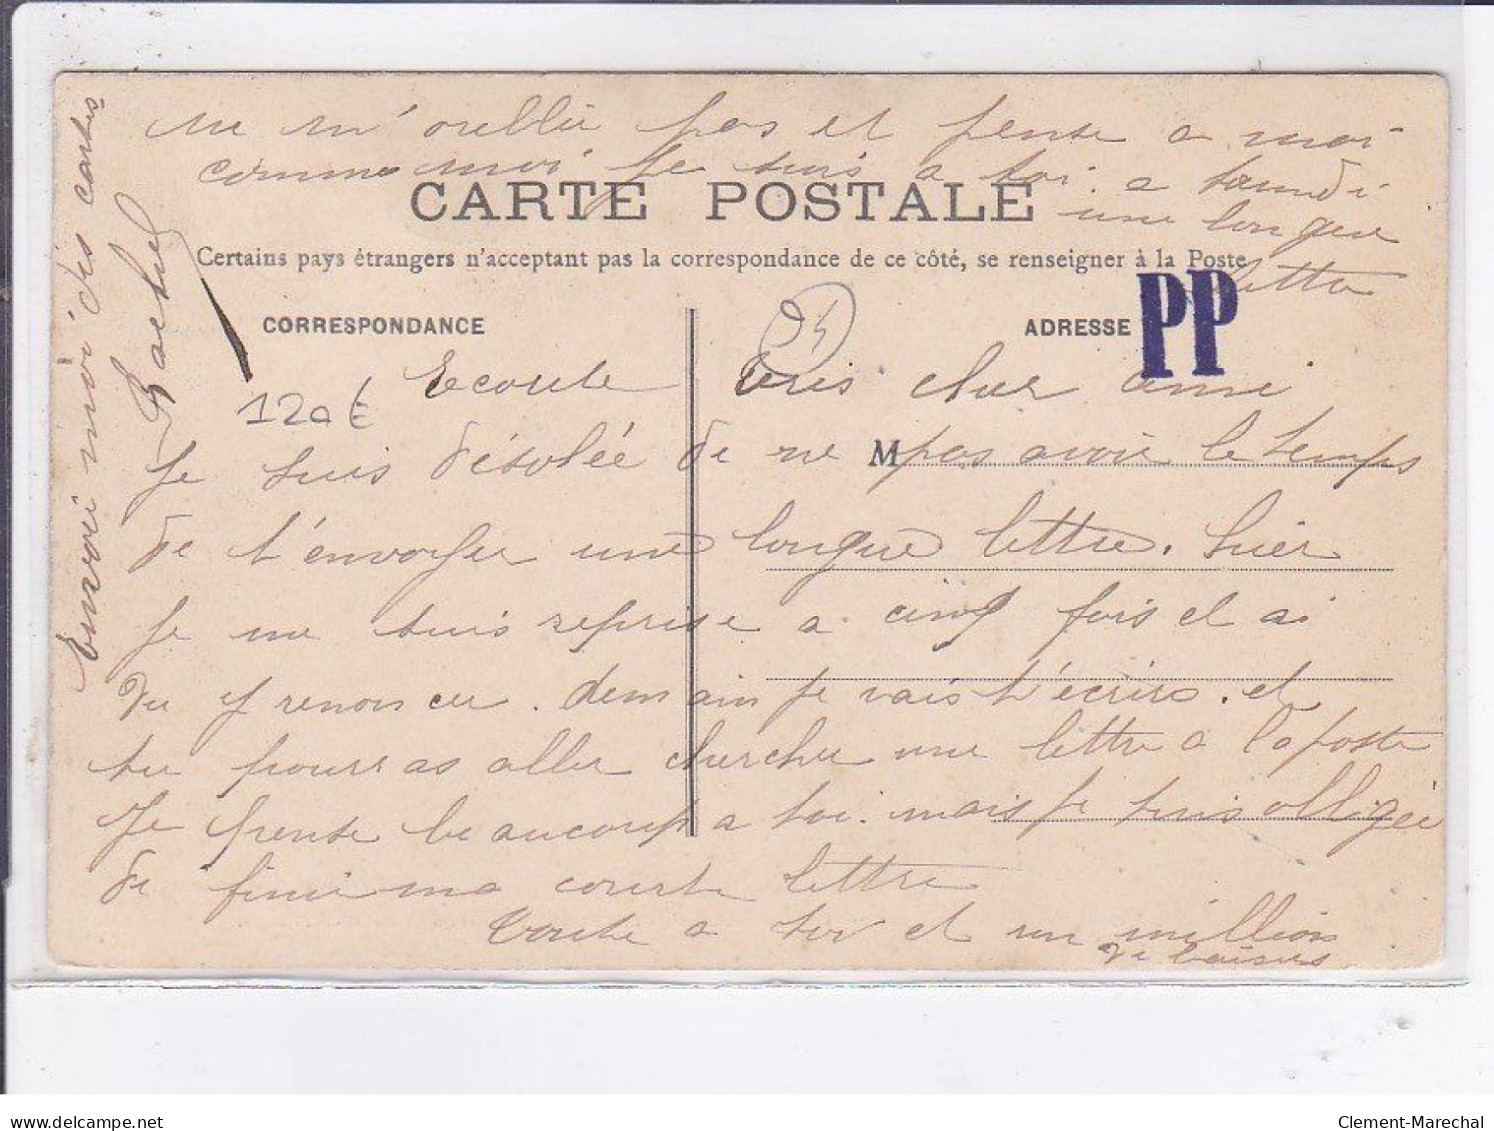 ne m'oublie pas et pense a moi
comme moi je suis a toi. a bandi
une longue
lettre
CARTE POSTALE
Certains pays étrangers n'acceptent pas la correspondance de ce côté, se renseigner à la Poste
CORRESPONDANCE
ADRESSE
PP
120€
Ecoute tres cher ami
M
Je suis désolée de ne pas avoir le temps
de t'envoyer une longue lettre. hier
Je me suis reprise a cinq fois et ai
du y renoncer. demain je vais t'écrire. et
tu pourras aller chercher une lettre a la poste
Je pense beaucoup a toi. mais je suis obligée
de finir ma courte lettre
toute a toi et un million
de baisers
Rachel
Envoi moi des cartes
delcampe.net
Clement-Marechal